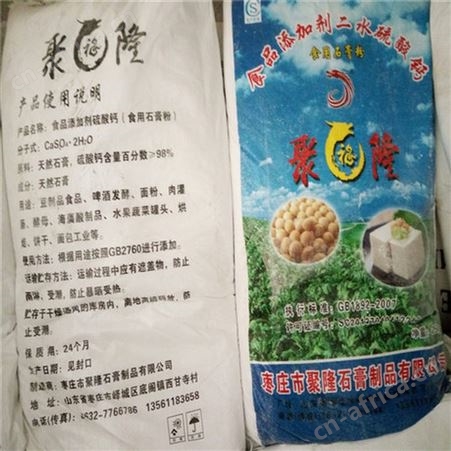 聚福隆
产品使用说明
产品名称：食品添加剂硫酸钙（食用石膏粉）
分子式：CaSO₄·2H₂O
原料：天然石膏，硫酸钙含量百分数≥98%
成分：天然石膏
用途：豆制品食品、啤酒发酵、面粉、肉灌
茶、酵母、海藻酸制品、水果蔬菜罐头、烘
焙、饼干、面包工业等。
使用方法：根据用途按照GB2760进行添加。
运输贮存方法：运输过程中应有遮盖物，防止
雨淋、受潮，防止暴晒受热。
贮存于干燥通风的库房内，离地离墙码放，防
止受潮。
保质期：24个月
生产日期：见封口
制造商：枣庄市聚隆石膏制品有限公司
地址：山东省枣庄市峄城区底阁镇西甘寺村
电话(传真)：0632-7766786 13561183658
食品添加剂二水硫酸钙
食用石膏粉
聚福隆
执行标准：GB1892-2007
许可证编号：
枣庄市聚隆石膏制品有限公司
cn-africa.com